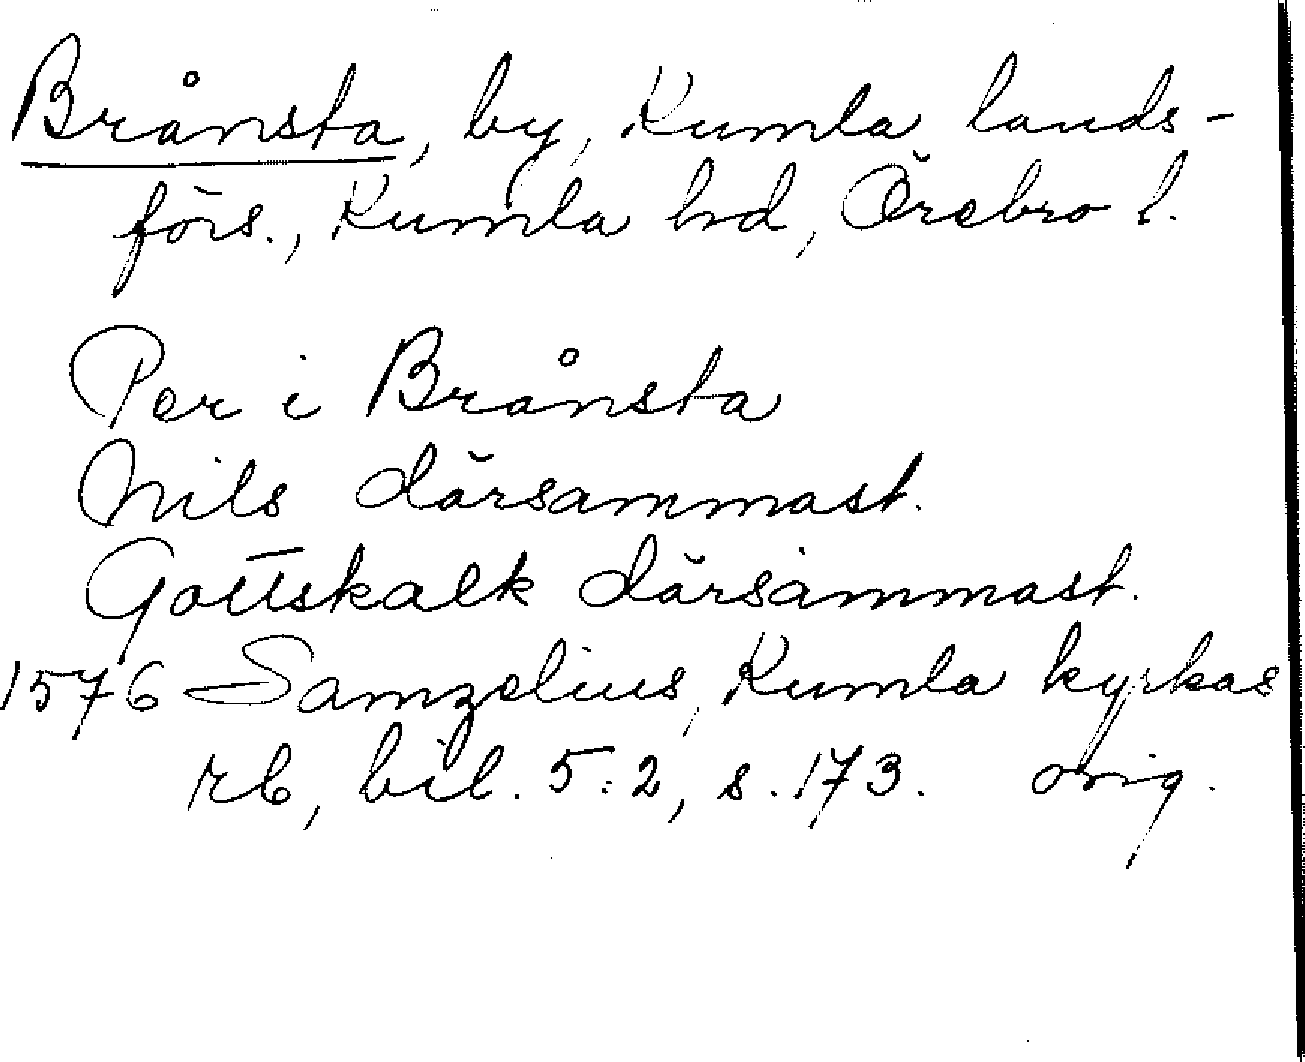 Brånsta, by, Kumla lands-
förs., Kumla hd, Örebro l.
Per i Brånsta
Nils därsammast.
Gottskalk därsammast.
1576 Samzelius, Kumla kyrkas
rb, bil. 5:2, s. 173. orig.